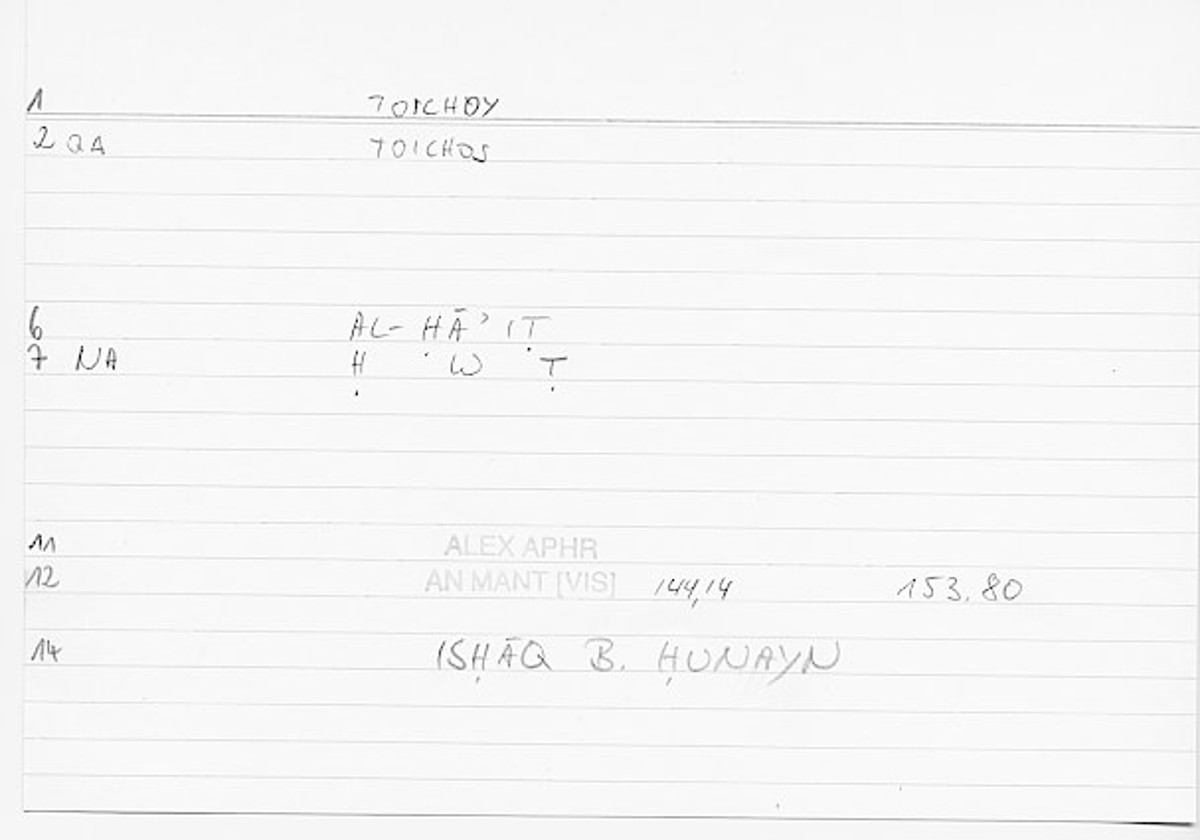 1 TOICHOY
2 QA TOICHOS
6 AL-ḤĀʾIṬ
7 NA Ḥ W Ṭ
11 ALEX APHR
12 AN MANT [VIS] 144,14 153.80
14 ISḤĀQ B. ḤUNAYN